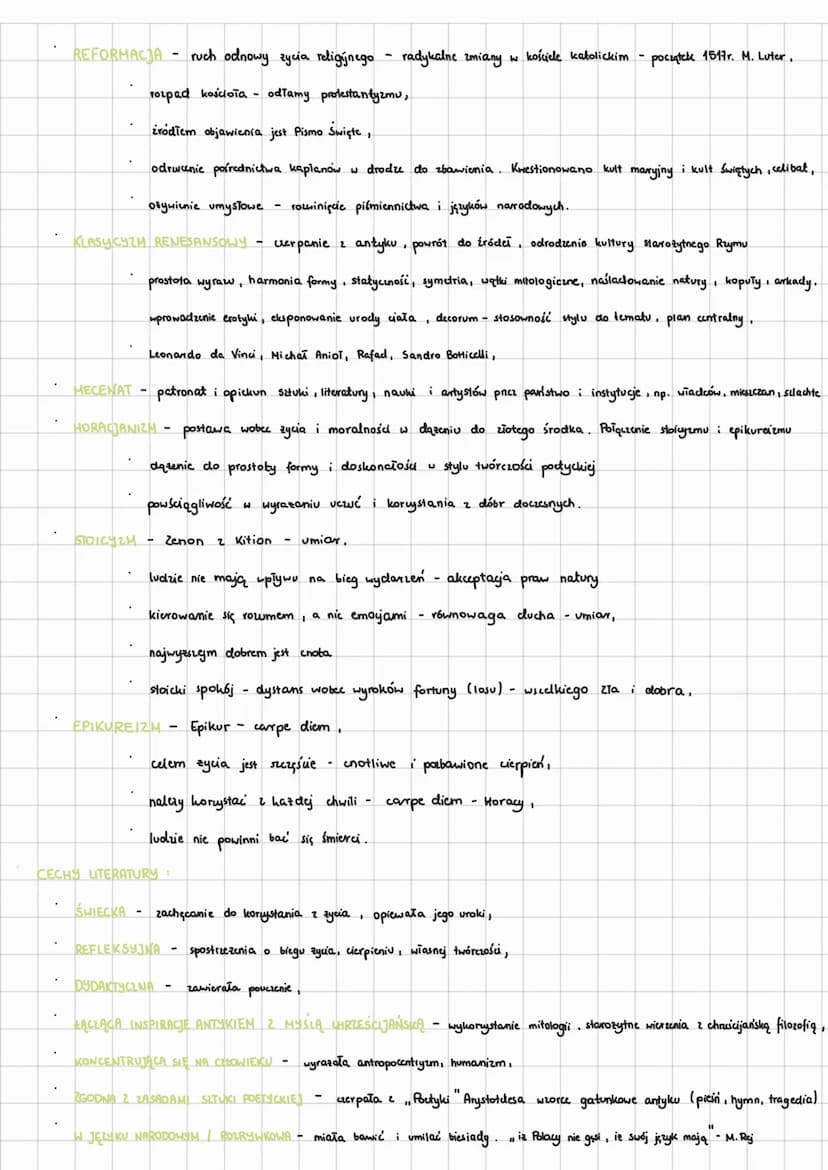 · REFORMACJA - ruch odnowy życia religijnego - radykalne zmiany w kościele katolickim - początek 1517r. M. Luter,
· rozpad kościoła - odłamy protestantyzmu,
· źródłem objawienia jest Pismo Święte,
· odrzucenie pośrednictwa kapłanów w drodze do zbawienia. Kwestionowano kult maryjny i kult świętych, celibat,
· ożywienie umysłowe - rozwinięcie piśmiennictwa i języków narodowych.
· KLASYCYZM RENESANSOWY - czerpanie z antyku, powrót do źródeł, odrodzenie kultury starożytnego Rzymu
· prostota wyrazu, harmonia formy, statyczność, symetria, wątki mitologiczne, naśladowanie natury, kopuły, arkady.
· wprowadzenie erotyki, eksponowanie urody ciała, decorum - stosowność stylu do tematu, plan centralny,
· Leonardo da Vinci, Michał Anioł, Rafael, Sandro Botticelli,
· MECENAT - patronat i opiekun sztuki, literatury, nauki i artystów przez państwo i instytucje, np. władców, mieszczan, szlachte
· HORACJANIZM - postawa wobec życia i moralności w dążeniu do złotego środka. Połączenie stoicyzmu i epikureizmu
· dążenie do prostoty formy i doskonałości w stylu twórczości poetyckiej
· powściągliwość w wyrażaniu uczuć i korzystania z dóbr doczesnych.
· STOICYZM - Zenon z Kition - umiar.
· ludzie nie mają wpływu na bieg wydarzeń - akceptacja praw natury
· kierowanie się rozumem, a nie emocjami - równowaga ducha - umiar,
· najwyższym dobrem jest cnota
· stoicki spokój - dystans wobec wyroków fortuny (losu) - wszelkiego zła i dobra,
· EPIKUREIZM - Epikur - carpe diem,
· celem życia jest szczęście - cnotliwe i pozbawione cierpień,
· należy korzystać z każdej chwili - carpe diem - Horacy,
· ludzie nie powinni bać się śmierci.
· CECHY LITERATURY:
· ŚWIECKA - zachęcanie do korzystania z życia, opiewała jego uroki,
· REFLEKSYJNA - spostrzeżenia o biegu życia, cierpieniu, własnej twórczości,
· DYDAKTYCZNA - zawierała pouczenie,
· ŁĄCZĄCA INSPIRACJE ANTYKIEM Z MYŚLĄ CHRZEŚCIJAŃSKĄ - wykorzystanie mitologii, starożytne wierzenia z chrześcijańską filozofią,
· KONCENTRUJĄCA SIĘ NA CZŁOWIEKU - wyrażała antropocentryzm, humanizm,
· ZGODNA Z ZASADAMI SZTUKI POETYCKIEJ - czerpała z „Poetyki" Arystotelesa wzorce gatunkowe antyku (pieśń, hymn, tragedia)
· W JĘZYKU NARODOWYM / ROZRYWKOWA - miała bawić i umilać biesiady. „iż Polacy nie gęsi, iż swój język mają" - M. Rej